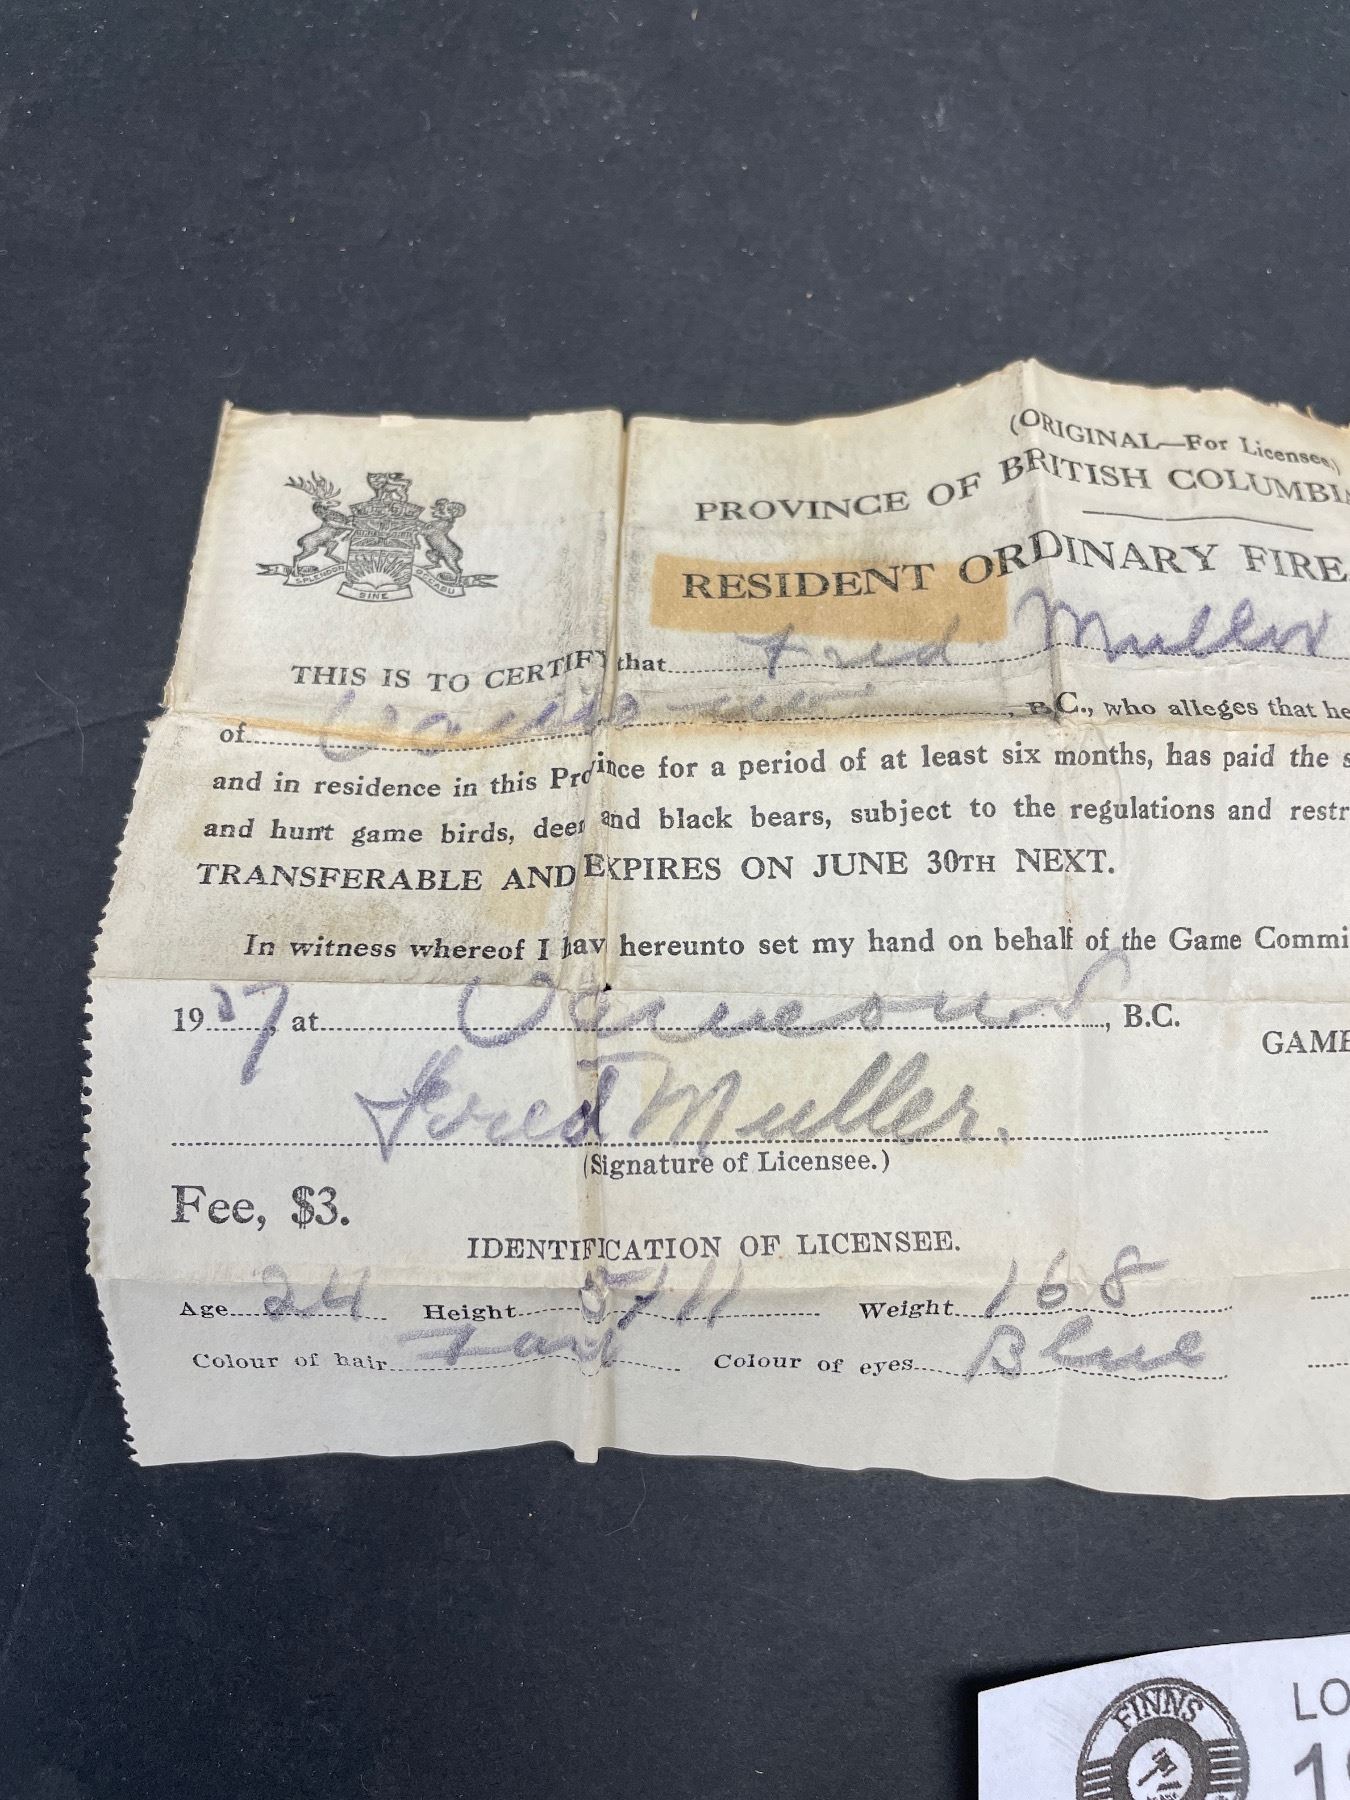 (ORIGINAL—For Licensee.)
PROVINCE OF BRITISH COLUMBIA
RESIDENT ORDINARY FIRE
SPLENDOR SINE OCCASU
THIS IS TO CERTIFY that Fred Muller
of Vancouver, B.C., who alleges that he
and in residence in this Province for a period of at least six months, has paid the s
and hunt game birds, deer and black bears, subject to the regulations and restr
TRANSFERABLE AND EXPIRES ON JUNE 30TH NEXT.
In witness whereof I hav hereunto set my hand on behalf of the Game Commi
1937, at Vancouver, B.C.
GAME
Fred Muller.
(Signature of Licensee.)
Fee, $3.
IDENTIFICATION OF LICENSEE.
Age 24 Height 5/11 Weight 168
Colour of hair Fair Colour of eyes Blue
FINNS
LO